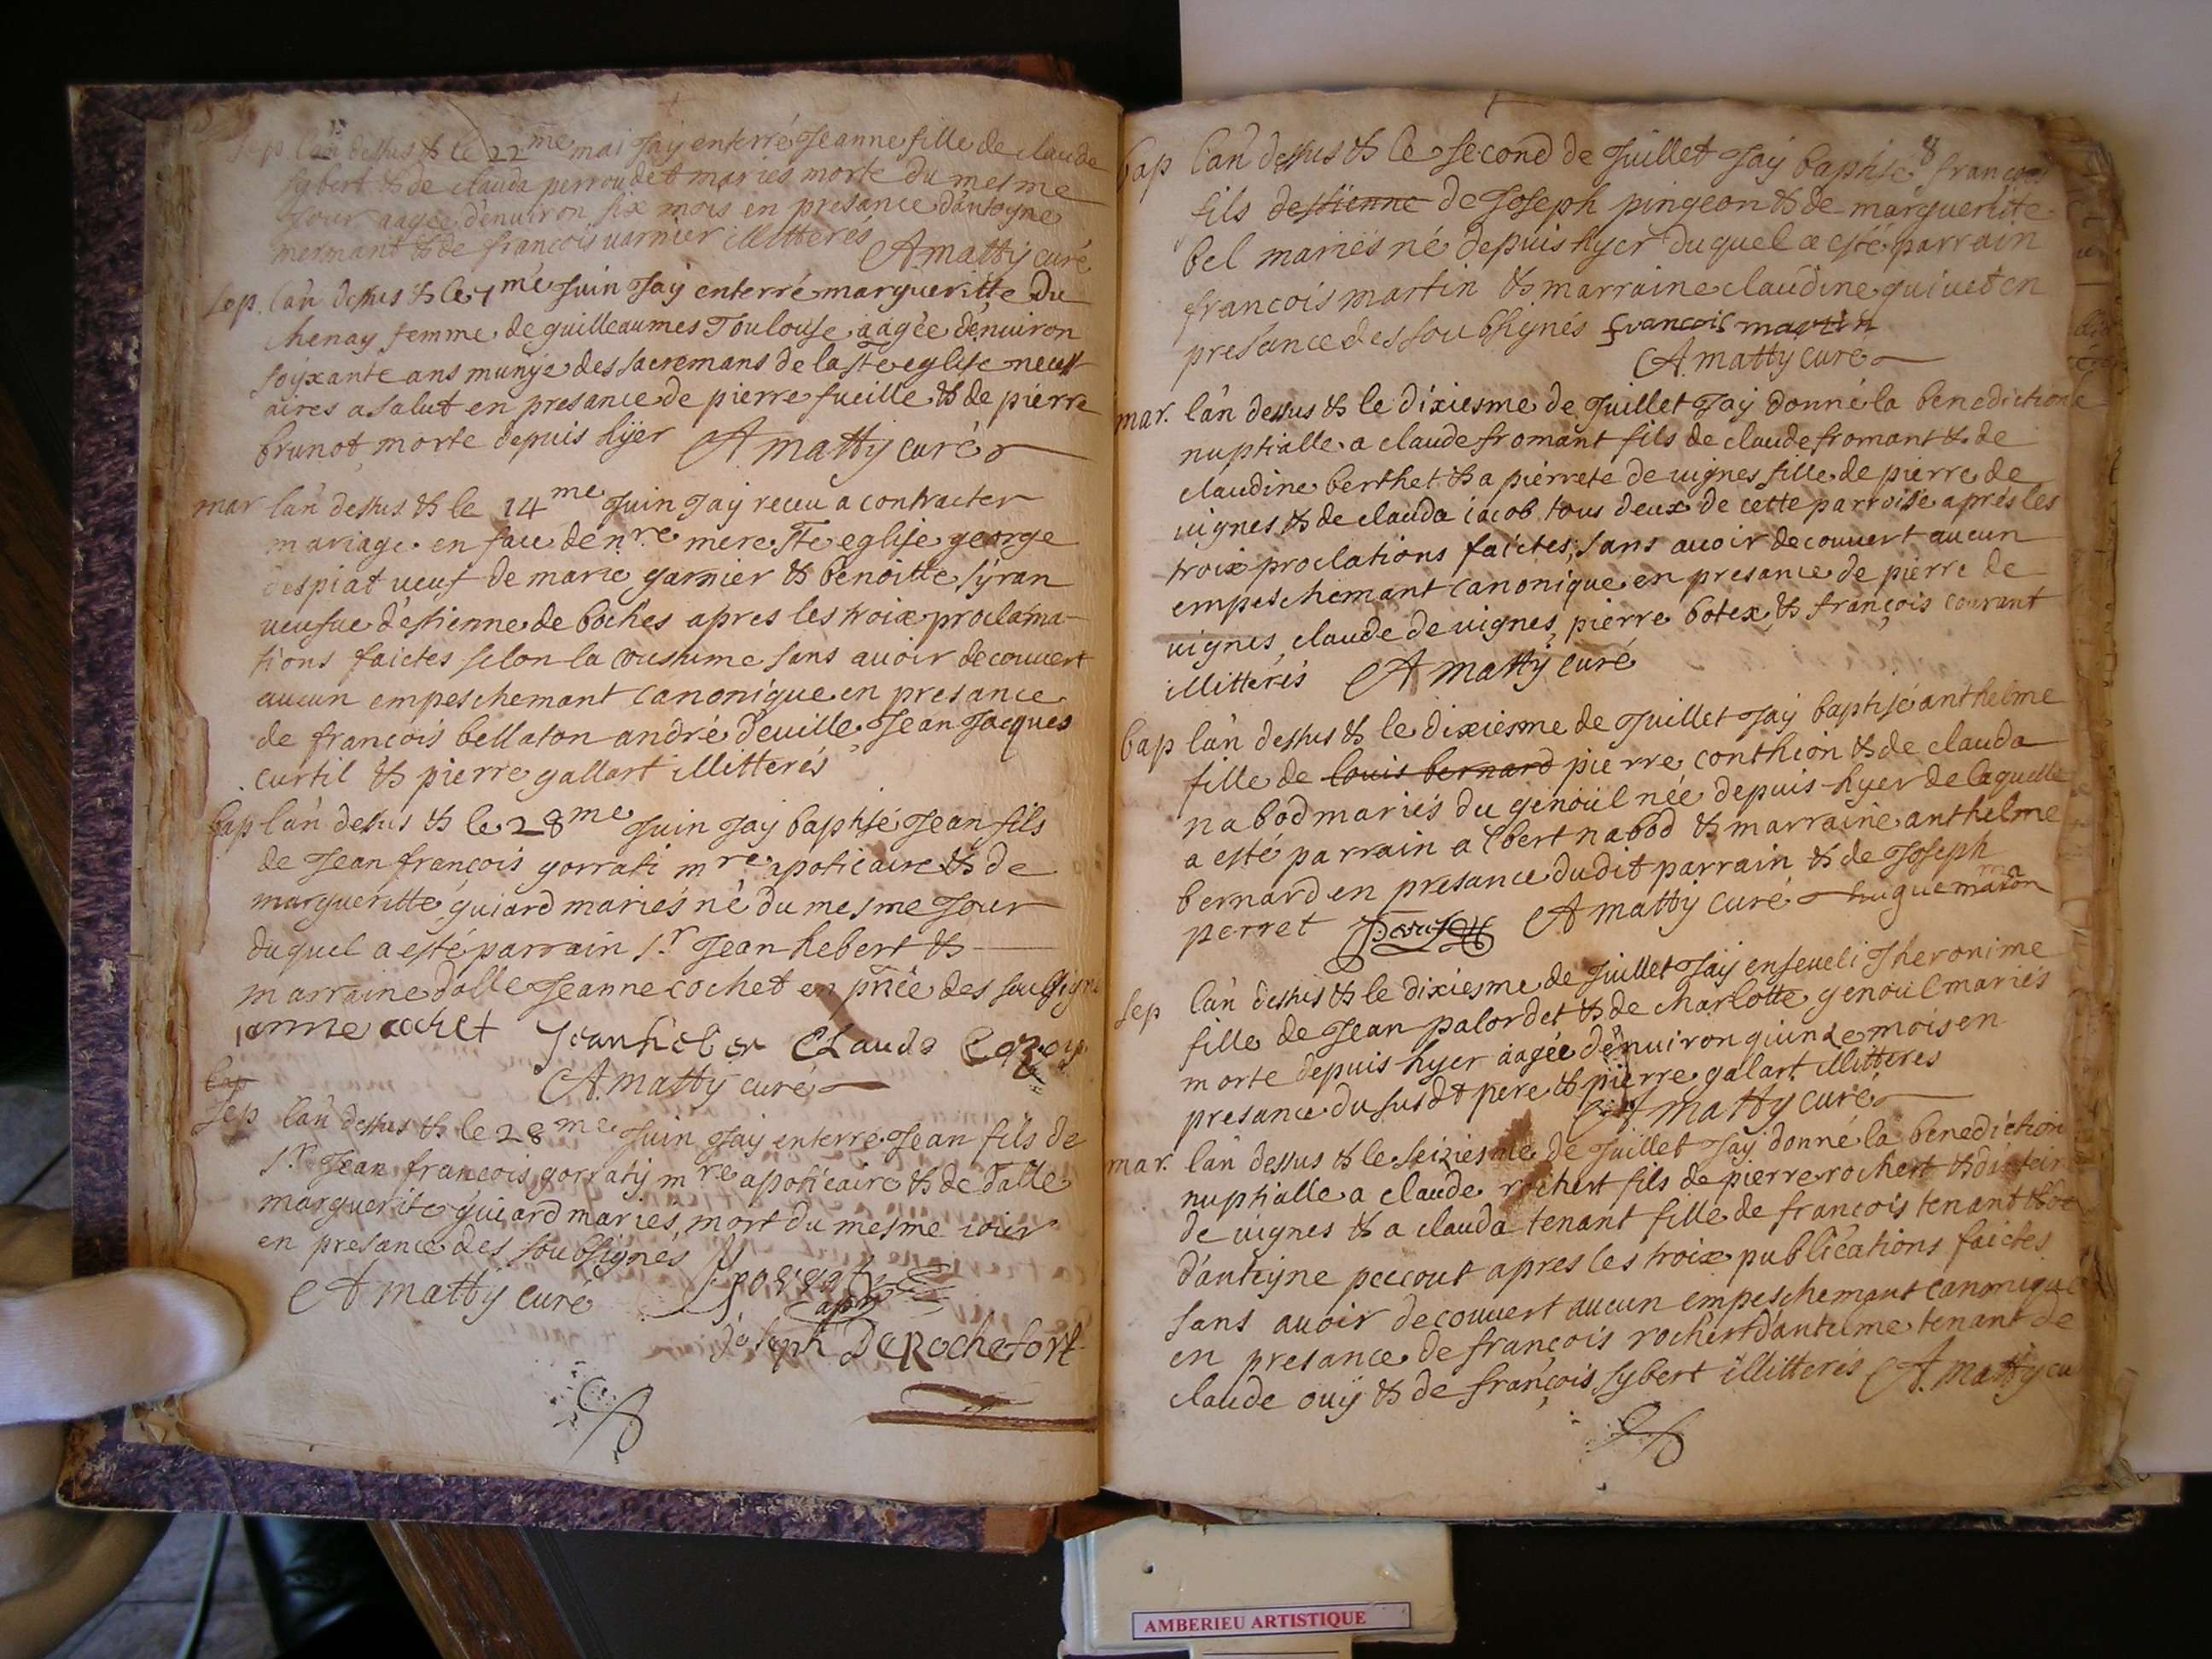 Sep. l'an dessus & le 22me mai Jay enterré Jeanne fille de claude
sybert & de clauda perroudet mariés morte du mesme
Jour aagée d'enuiron six mois en presance d'antoyne
mermant & de francois uarnier illitterés A. matty curé
Sep. l'an dessus & le 7me Juin Jay enterré margueritte Du
chenay femme de guilleaumes Toulouse aagée d'enuiron
soyxante ans munye des sacremans de la Ste eglise necess-
aires a salut en presance de pierre fueille & de pierre
brunot, morte depuis hyer A matty curé
mar l'an dessus & le 14me Juin Jay receu a contracter
mariage en face de nre mere Ste eglise george
despiat ueuf de marie garnier & benoitte syran
ueufue d'estienne de boches apres les troix proclama-
tions faictes selon la coustume sans auoir decouuert
aucun empeschemant canonique en presance
de francois bellaton andré deuille, Jean Jacques
curtil & pierre gallart illitterés
bap l'an dessus & le 28me Juin Jay baptisé Jean fils
de Jean françois gorrati mre apoticaire & de
margueritte guiard mariés né du mesme Jour
duquel a esté parrain Sr Jean hebert &
marraine dalle Jeanne cochet en pnce des soubsigné
Janne cochet Jean heber Claude
A. matty curé
bap
Sep l'an dessus & le 28me Juin Jay enterré Jean fils de
Sr Jean francois gorraty mre apoticaire & de dalle
marguerite guiard mariés, mort du mesme ioür
en presance des soubsignés
A matty curé
Joseph DeRochefort
8
bap l'an dessus & le second de Juillet Jay baptisé francois
fils destienne de Joseph pingeon & de marguerite
bel mariés né depuis hyer duquel a esté parrain
francois martin & marraine claudine quiuet en
presance des soubsignés francois martin
A. matty curé
mar. l'an dessus & le dixiesme de Juillet Jay donné la benediction
nuptialle a claude fromant fils de claude fromant & de
claudine berthet & a pierrete de uignes fille de pierre de
uignes & de clauda iacob tous deux de cette parroisse apres les
troix proclations faictes, sans auoir decouuert aucun
empeschemant canonique en presance de pierre de
uignes, claude de uignes, pierre botex, & françois courant
illitterés A matty curé
bap l'an dessus & le dixiesme de Juillet Jay baptisé anthelme
fille de louis bernard pierre conthion & de clauda
nabod mariés du genoüil née depuis hyer de laquelle
a esté parrain albert nabod & marraine anthelme
bernard en presance dudit parrain & de Joseph
perret A matty curé hugue maron
Sep l'an dessus & le dixiesme de Juillet Jay enseueli Jheronime
fille de Jean palordet & de charlotte genoul mariés
morte depuis hyer aagée d'enuiron quinze mois en
presance du susdt pere & pierre galart illitterés
A. matty curé
mar. l'an dessus & le seiziesme de Juillet Jay donné la benediction
nuptialle a claude rochert fils de pierre rochert &
de uignes & a clauda tenant fille de francois tenant & de
d'anteyne peccout apres les troix publications faictes
sans auoir decouuert aucun empeschemant canonique
en presance de francois rochert d'antelme tenant de
claude ouy & de françois sybert illitterés A. matty cu
AMBERIEU ARTISTIQUE